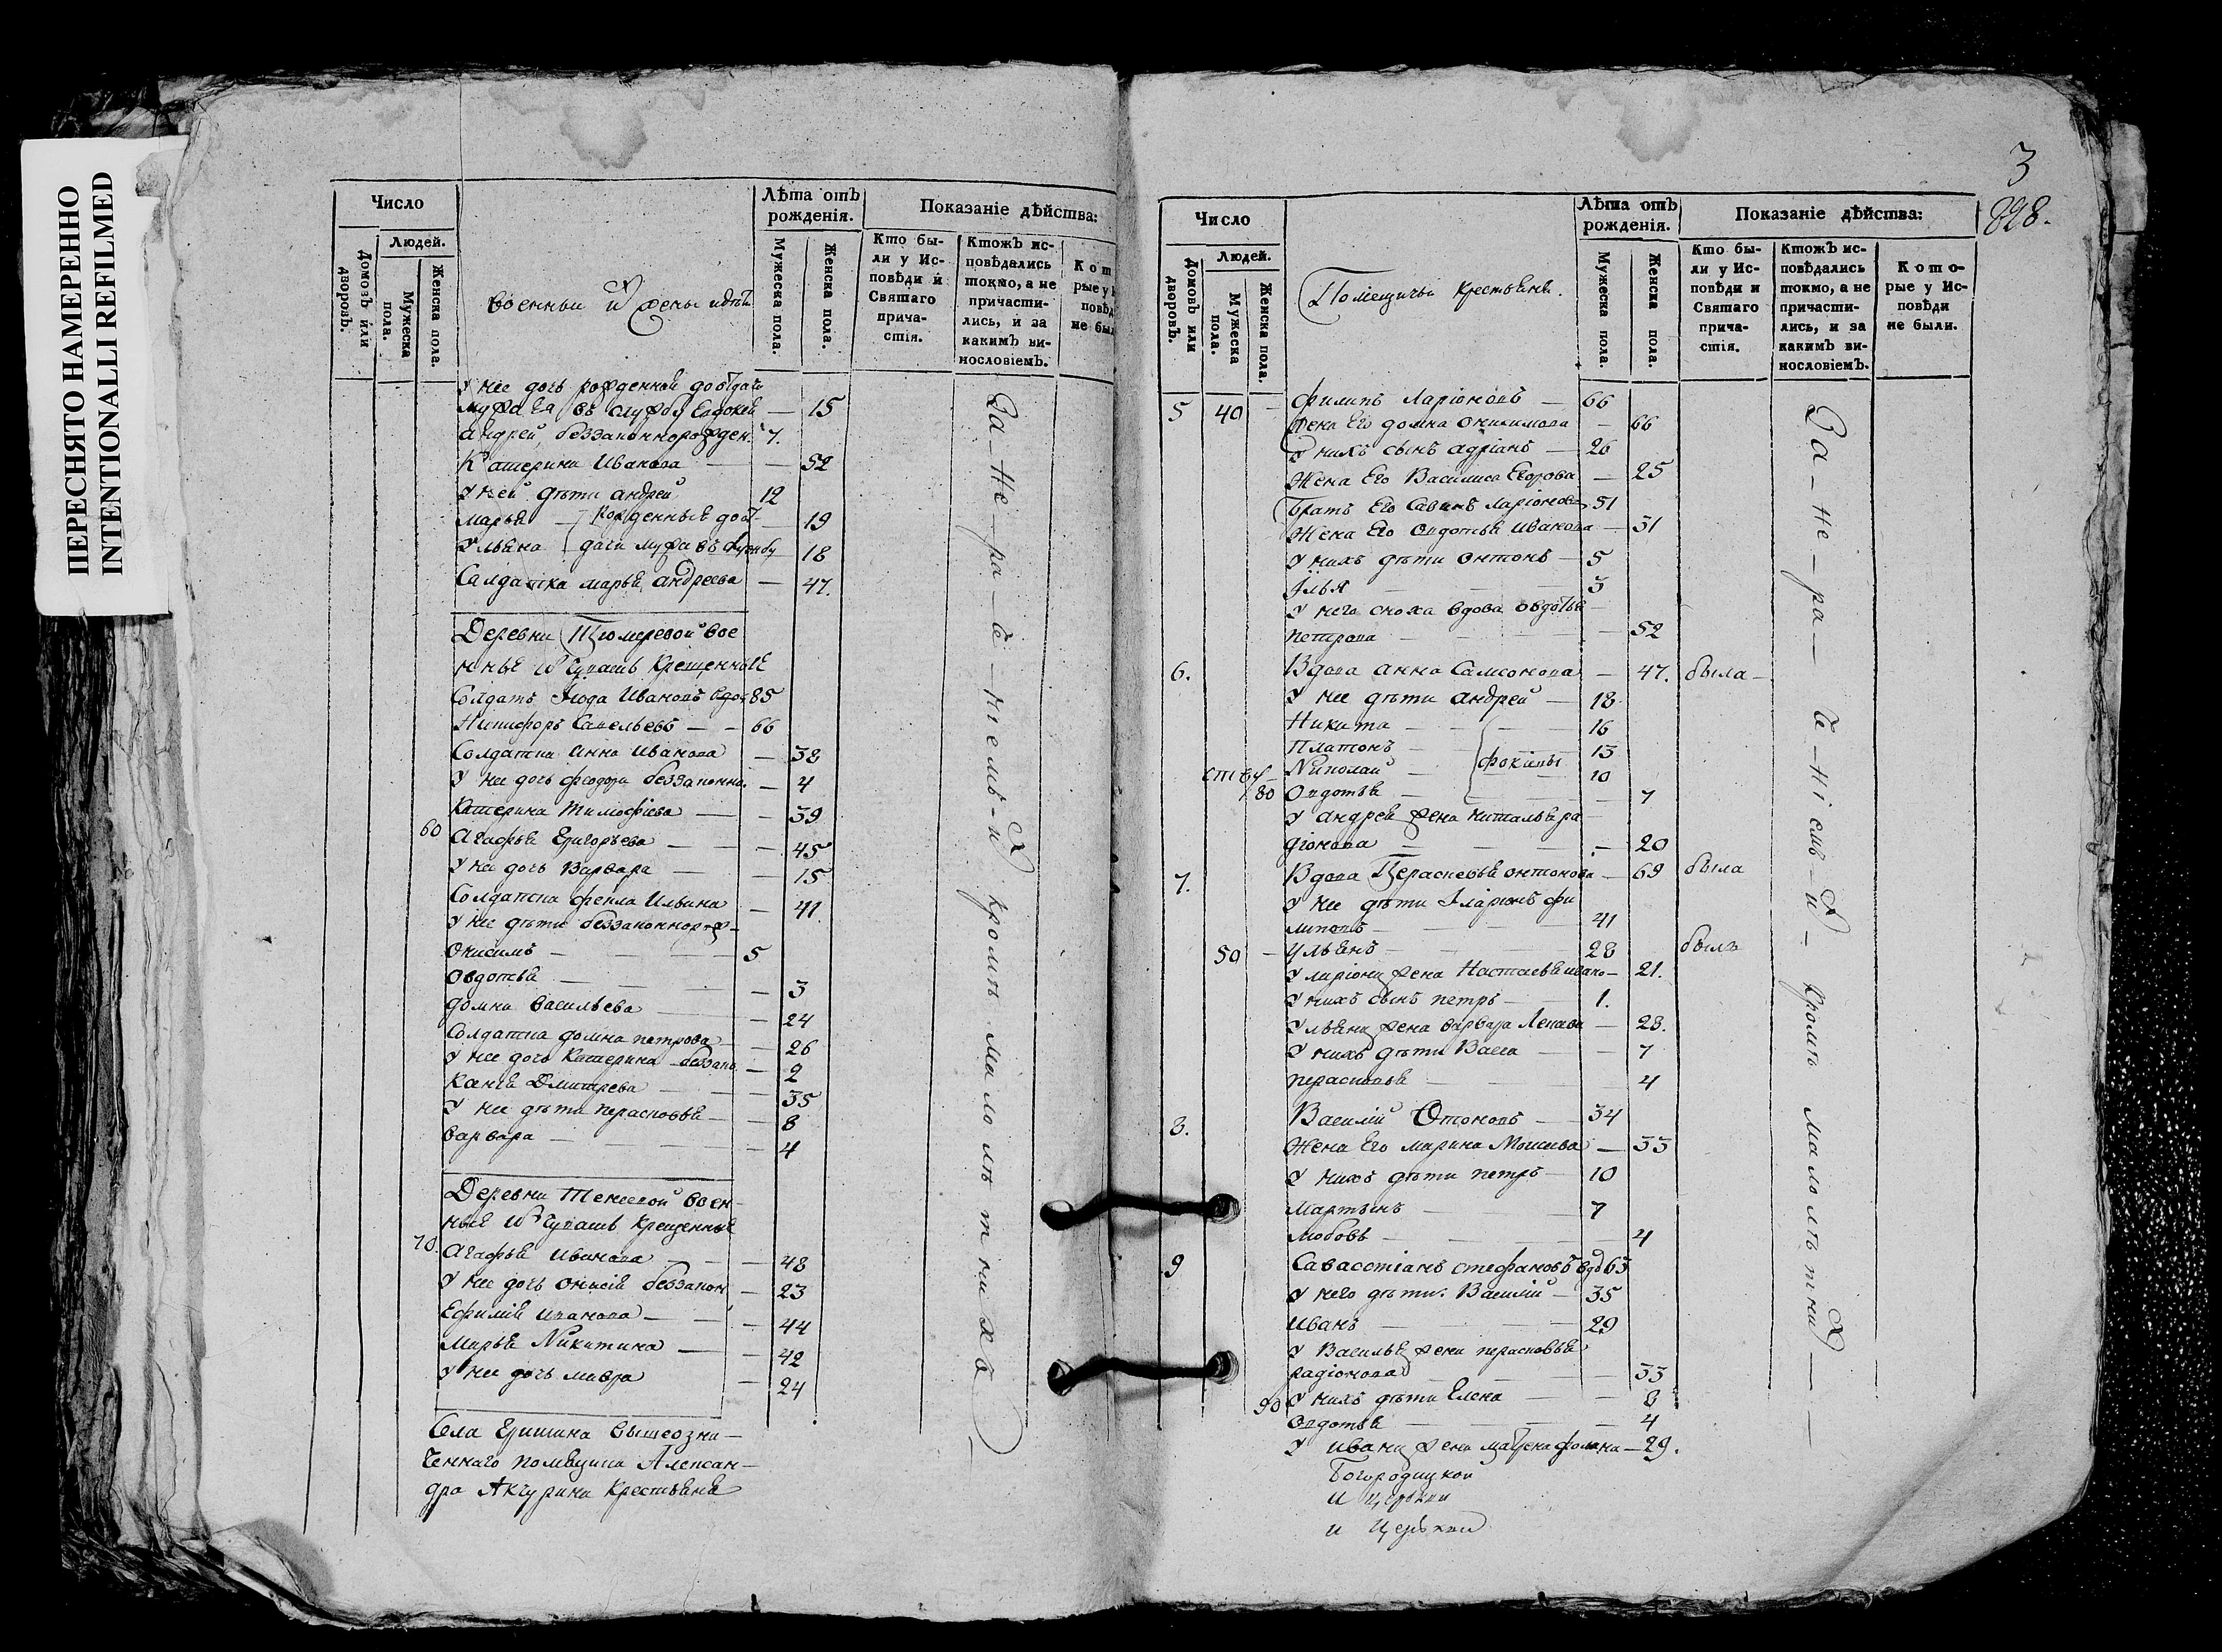 ПЕРЕСНЯТО НАМЕРЕННО
INTENTIONALLI REFILMED
Число
Людей.
Домовъ или дворовъ.
Мужеска пола.
Женска пола.
военныи и жены ихъ
Лѣта отъ рожденія.
Мужеска пола.
Женска пола.
Показаніе дѣйства:
Кто были у Исповѣди и Святаго причастія.
Ктожъ исповѣдались токмо, а не причастились, и за какимъ винословіемъ.
У нее дочь рожденная до отдачи
мужа ея въ службу Евдокея — 15
Андрей, беззаконнорожден. 7.
Катерина Иванова — — 52
У ней дѣти андрей 12
Марья — рожденные до от- 19
Ульяна дачи мужа въ службу 18
Салдатка марья андреева — 47.
Деревни
нные изъ Чувашъ Крещенные
Солдатъ Иванъ вдов. 85
Никифоръ Савельевъ — — 66
Солдатка анна Иванова — 38
У нее дочь феодора беззаконна. — 4
Катерина Тимофѣева — — 39
60 Агафья Григорьева — — — 45
У нее дочь Варвара — — 15
Солдатка фекла Ильина — 41.
У нее дѣти беззаконнорож-
Онисимъ — — — 5
Овдотья — — — 3
домна Васильева — — 24
Солдатка домна петрова — — 26
У нее дочь Катерина беззако. — 2
Дмитрева — — — 35
У нее дѣти перасковья — — 8
варвара — — — 4
Деревни воен-
ные изъ Чувашъ крещенные
70. Агафья Иванова — — — 48
У нее дочь беззакон. — 23
Ефимія Иванова — — — 44
Марья Никитина — — 42
У нее дочь мавра — 24
Села вышеозна-
ченнаго помѣщика Алексан-
дра Акчурина Крестьяне
За-не-ра-че-ніемъ-ихъ кромѣ малолѣтнихъ
3
828.
Число
Людей.
Домовъ или дворовъ.
Мужеска пола.
Женска пола.
Помещичьи крестьяне.
Лѣта отъ рожденія.
Мужеска пола.
Женска пола.
Показаніе дѣйства:
Кто были у Исповѣди и Святаго причастія.
Ктожъ исповѣдались токмо, а не причастились, и за какимъ винословіемъ.
Которые у Исповѣди не были.
5 40 — Филипъ Ларіоновъ — 66
Жена Его домна Онисимова — 66
У нихъ сынъ адріанъ — 26
Жена Его Василиса Егорова — 25
Братъ Его Савинъ Ларіоновъ 51
Жена Его Овдотья Иванова — 31
У нихъ дѣти Онтонъ — 5
Илья — — 3
У него сноха вдова овдотья
петрова — — — 52
6. Вдова анна Самсонова — 47. была —
У нее дѣти андрей — 18
Никита — — 16
Платонъ — фокины 13
Николай — 10
80 Овдотья — — 7
У андрея жена Наталья ра-
діонова — — 20
7. Вдова Перасковья антонова — 69 была
У нее дѣти Иларіонъ фи
липовъ — — 41
50 — Ульянъ — — 28 былъ
У ларіона жена Настасья ивано — 21.
У нихъ сынъ петръ — 1.
У Ульяна жена варвара — 28.
У нихъ дѣти Васса — — 7
перасковья — — 4
8. Василій — 34
Жена Его марина — 33
У нихъ дѣти петръ — 10
Мартынъ — — 7
Любовь — — 4
9 Савастіанъ стефановъ вдо 65
У него дѣти. Василій — 35
Иванъ — — 29
У Василья жена перасковья
Радіонова — — 33
90 У нихъ дѣти Елена — — 8
Овдотья — — 4
У ивана жена матрена — 29.
Богородицкой
и церкви
и Церкви
За-не-ра-че-ніемъ-ихъ- кромѣ малолѣтнихъ —